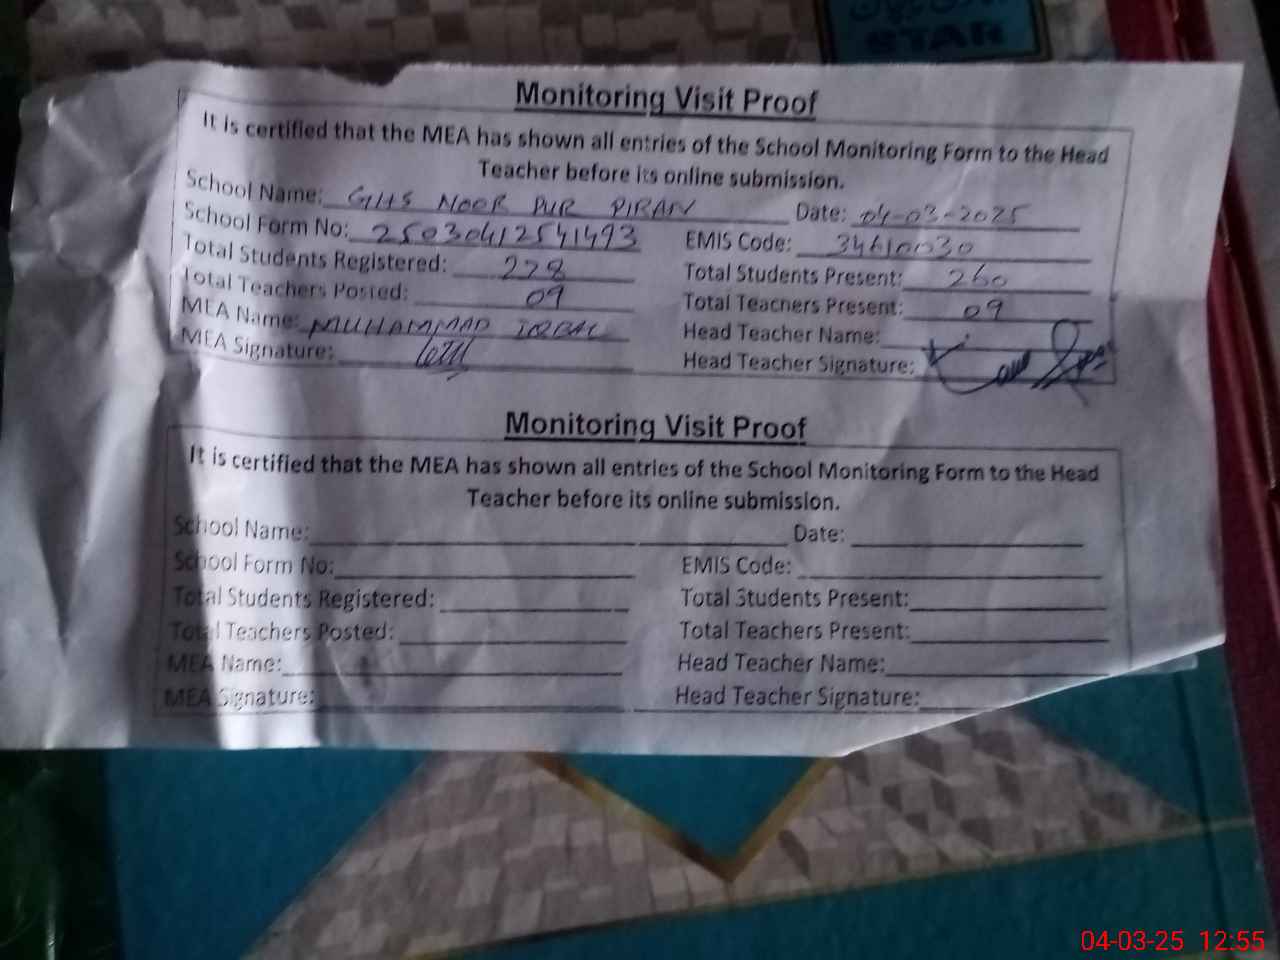 STAR
Monitoring Visit Proof
It is certified that the MEA has shown all entries of the School Monitoring Form to the Head
Teacher before its online submission.
School Name: GHS NOOR PUR PIRAN Date: 04-03-2025
School Form No: 25030412541493 EMIS Code: 34610030
Total Students Registered: 278 Total Students Present: 260
Total Teachers Posted: 09 Total Teachers Present: 09
MEA Name: MUHAMMAD IQBAL Head Teacher Name:
MEA Signature: Head Teacher Signature:
Monitoring Visit Proof
It is certified that the MEA has shown all entries of the School Monitoring Form to the Head
Teacher before its online submission.
School Name: Date:
School Form No: EMIS Code:
Total Students Registered: Total Students Present:
Total Teachers Posted: Total Teachers Present:
MEA Name: Head Teacher Name:
MEA Signature: Head Teacher Signature:
04-03-25 12:55